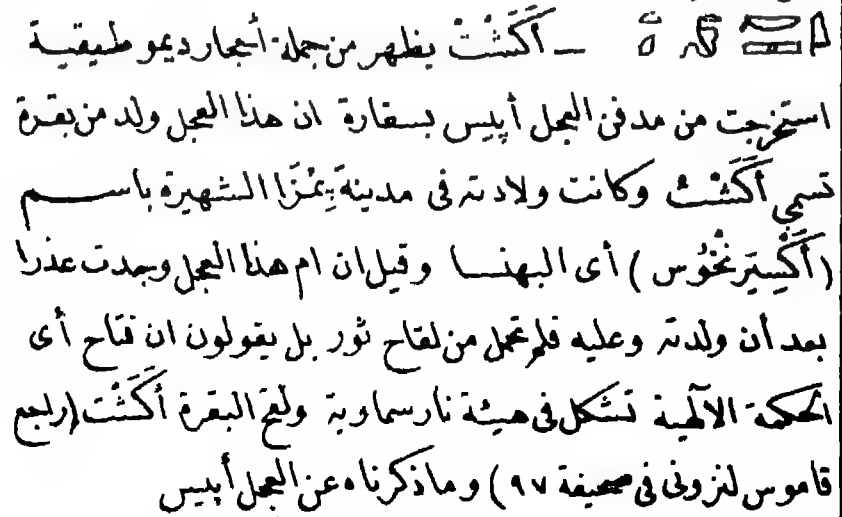 — أَكَشْتْ يظهر من جملة أحجار ديموطيقية
استخرجت من مدفن العجل أبيس بسقارة ان هذا العجل ولد من بقرة
تسمي أَكَشْتْ وكانت ولادته فى مدينة بِمْزَا الشهيرة باسم
(أُكْسِيْرِنْخُوس) أى البهنسا وقيل ان ام هذا العجل وجدت عذرا
بعد أن ولدته وعليه فلم تحمل من لقاح ثور بل يقولون ان فتاح أى
الحكمة الآلهية تشكل فى هيئة نار سماوية ولقح البقرة أَكَشْت (راجع
قاموس لنزونى فى صحيفة ٩٧) وما ذكرناه عن العجل أبيس